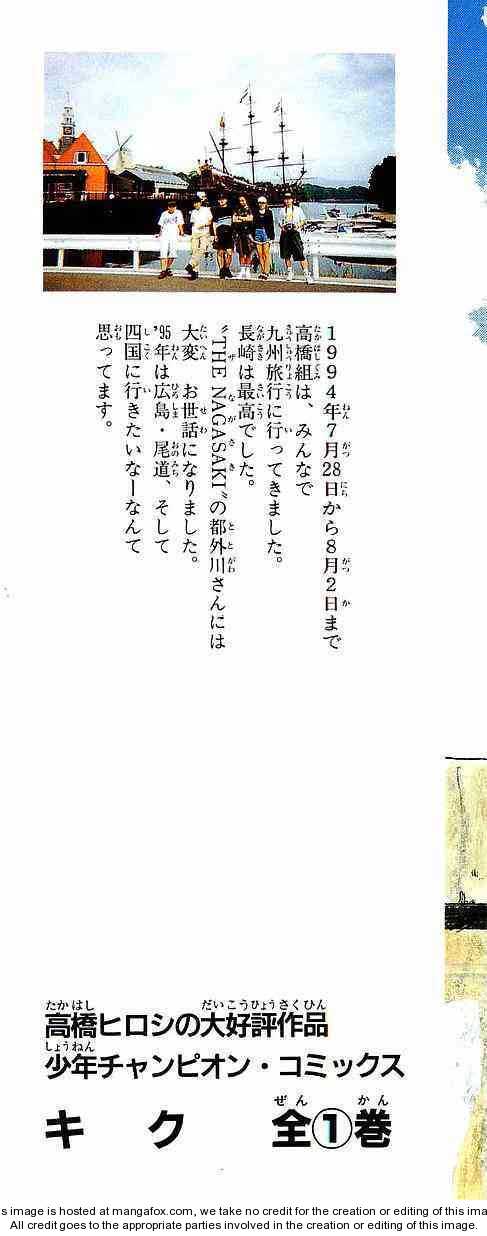 1994年7月28日から8月2日まで
高橋組は、みんなで
九州旅行に行ってきました。
長崎は最高でした。
"THE NAGASAKI"の都外川さんには
大変　お世話になりました。
'95年は広島・尾道、そして
四国に行きたいなーなんて
思ってます。
高橋ヒロシの大好評作品
少年チャンピオン・コミックス
キク 全①巻
s image is hosted at mangafox.com, we take no credit for the creation or editing of this ima
All credit goes to the appropriate parties involved in the creation or editing of this image.